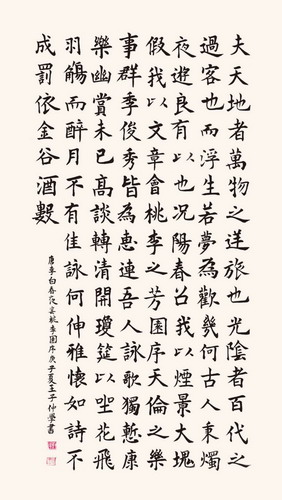 夫天地者萬物之逆旅也光陰者百代之
過客也而浮生若夢為歡幾何古人秉燭
夜遊良有以也況陽春召我以煙景大塊
假我以文章會桃李之芳園序天倫之樂
事群季俊秀皆為惠連吾人詠歌獨慙康
樂幽賞未已髙談轉清開瓊筵以坐花飛
羽觴而醉月不有佳詠何伸雅懷如詩不
成罰依金谷酒數
唐李白春夜宴桃李園序庚子夏王子仲學書